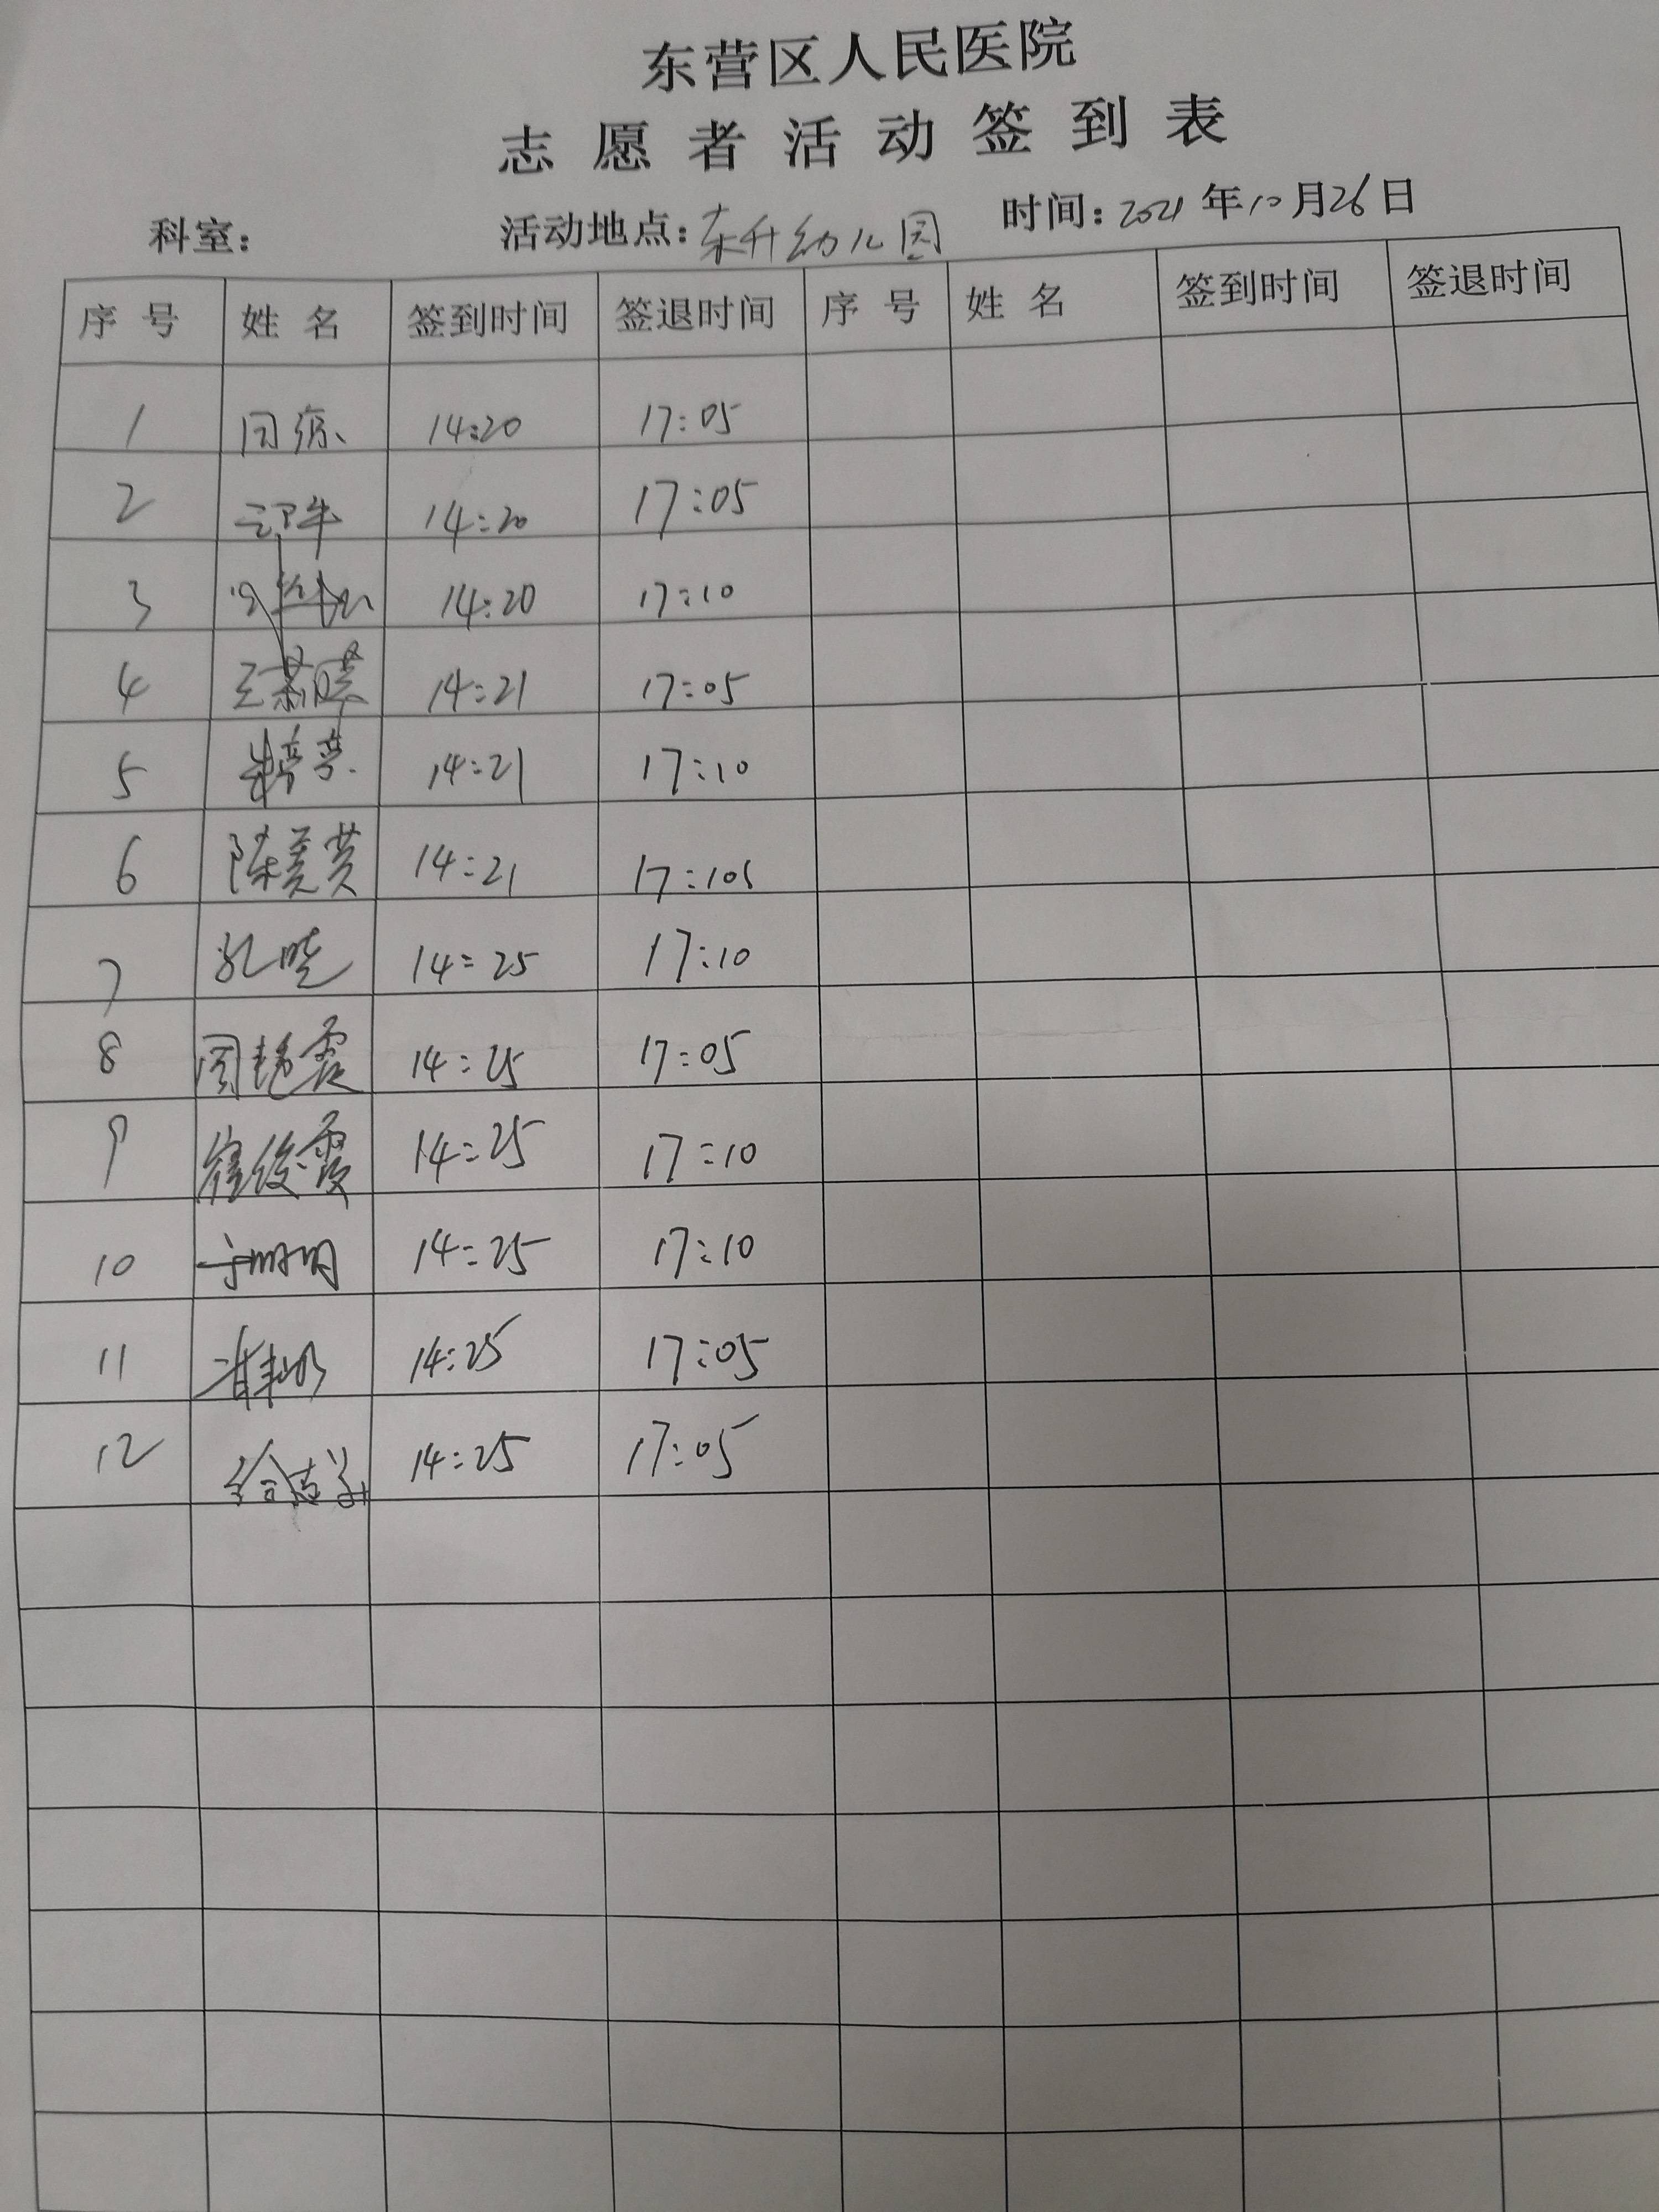 东营区人民医院
志愿者活动签到表
科室： 活动地点：东升幼儿园 时间：2021年10月26日
序号 姓名 签到时间 签退时间 序号 姓名 签到时间 签退时间
1 14:20 17:05
2 14:20 17:05
3 14:20 17:10
4 14:21 17:05
5 14:21 17:10
6 14:21
7 孔晓 14:25 17:10
8 周艳霞 14:25 17:05
9 崔俊霞 14:25 17:10
10 14:25 17:10
11 14:25 17:05
12 14:25 17:05